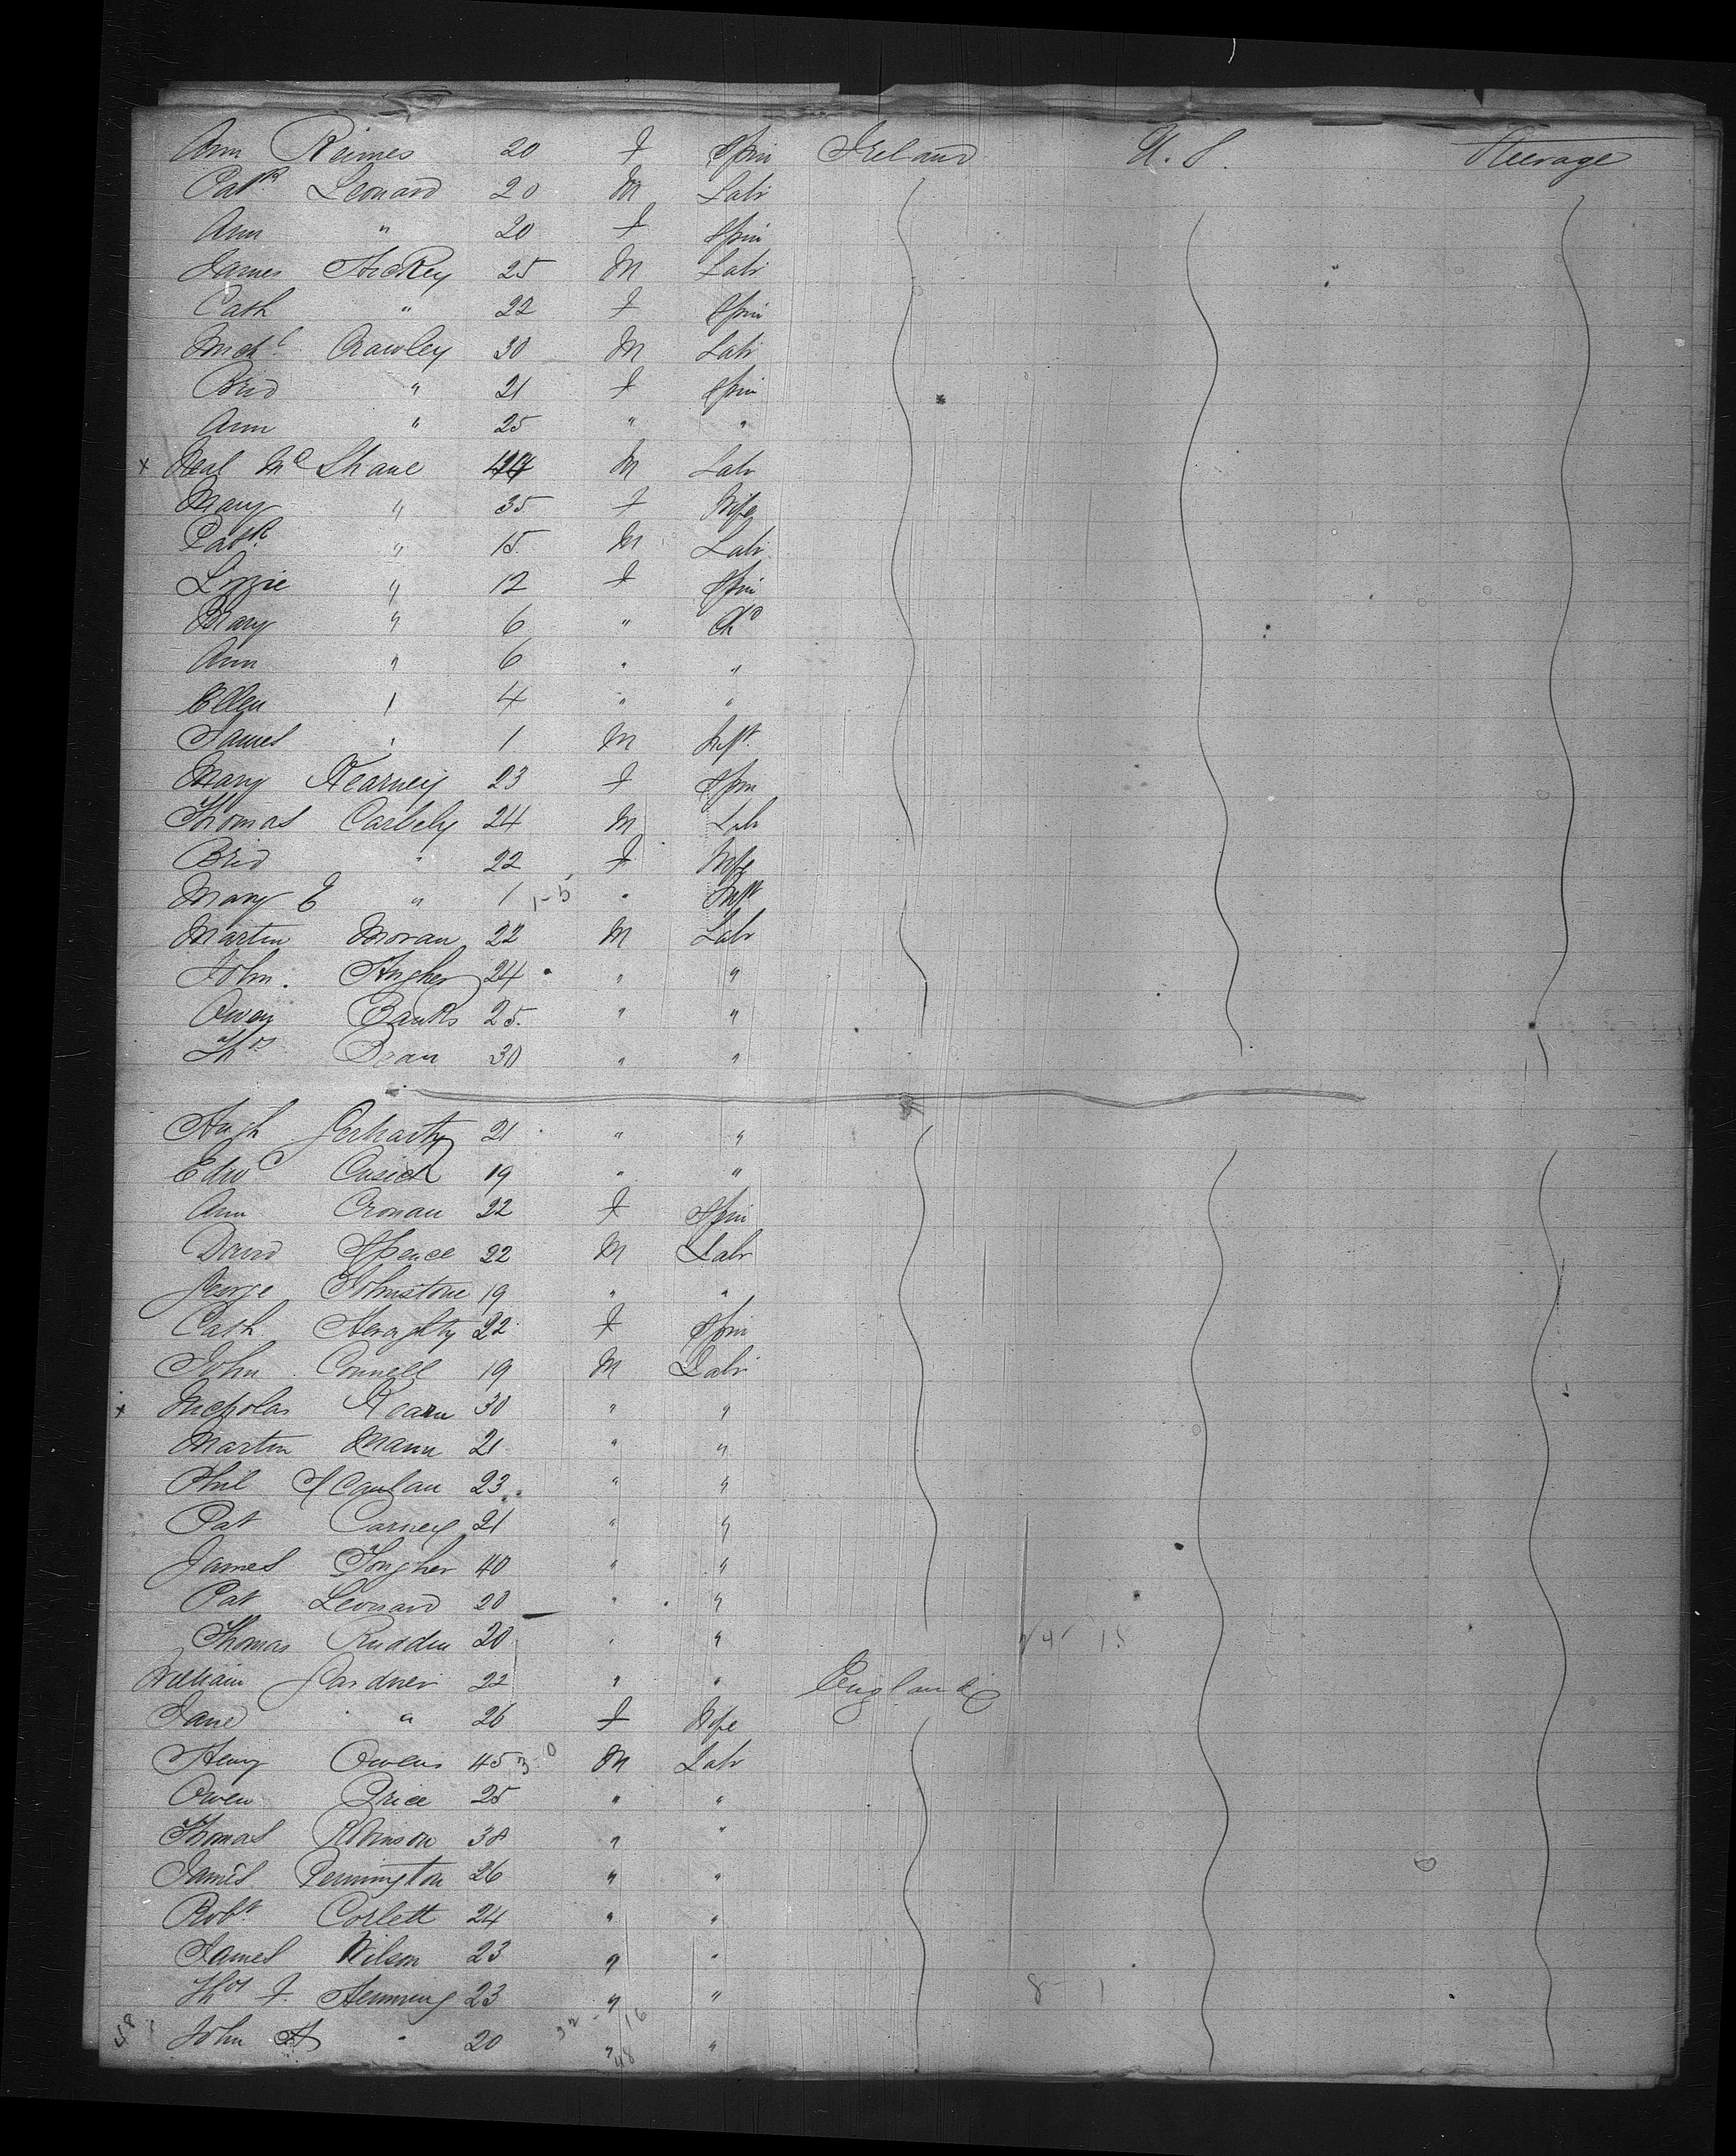 Ann Reimes 20 F Spin Ireland U.S. Steerage
Patk Leonard 20 M Labr
Ann " 20 F Spin
James Hickey 25 M Labr
Cath " 22 F Spin
Michl Crawley 30 M Labr
Brid " 21 F Spin
Ann " 25 " "
x Neal McShane M Labr
Mary " 35 F Wife
Patk " 15 M Labr
Lizzie " 12 F Spin
Mary " 6 " Chd
Ann " 6 " "
Ellen " 4 " "
James " 1 M Inft
Mary Kearney 23 F Spin
Thomas Carbely 24 M Labr
Brid " 22 F Wife
Mary E " 1 1-5 " Inft
Martin Moran 22 M Labr
John Hugher 24 " "
Owen Banks 25 " "
Thos 30 " "
Hugh 21 " "
Edwd Cusick 19 " "
Ann Cronan 22 F Spin
David Spence 22 M Labr
George Johnstone 19 " "
Cath Heraghty 22 F Spin
John Connell 19 M Labr
x Nicholas Kearn 30 " "
Martin Mann 21 " "
Phil Scanlan 23 " "
Pat Carney 21 " "
James Songher 40 " "
Pat Leonard 20 " "
Thomas Rudden 20 " "
William Gardner 22 " " England
Jane " 26 F Wife
Henry Owens 45 30 M Labr
Owen Price 25 " "
Thomas Robinson 38 " "
James Pennington 26 " "
Robt Corlett 24 " "
James Wilson 23 " "
Thos F. Hemming 23 " " 8 1
48 John A " 20 32 - 16 " 48 "